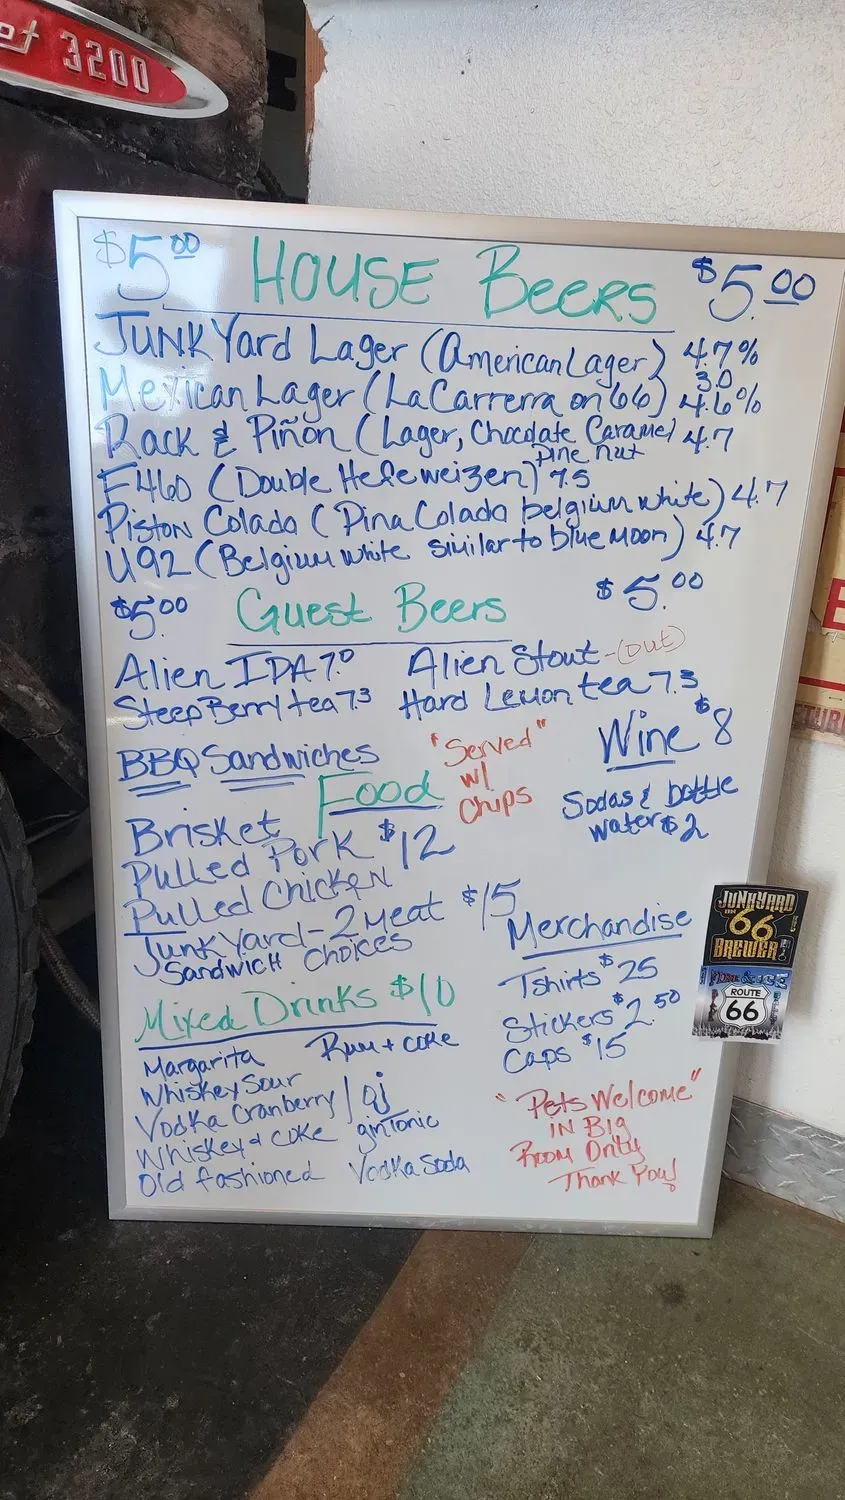 et 3200
$5.00 HOUSE Beers $5.00
JUNKYard Lager (American Lager) 4.7%
3.0
Mexican Lager (La Carrerra on 66) 4.6%
Rack & Piñon (Lager, Chocolate Caramel 4.7
pine nut
F460 (Double Hefeweizen) 7.5
Piston Colada (Pina Colada belgium white) 4.7
U92 (Belgium white similar to blue Moon) 4.7
$5.00 Guest Beers $5.00
Alien IPA 7.0 Alien Stout -(out)
Steep Berry tea 7.3 Hard Lemon tea 7.3
BBQ Sandwiches
"Served"
w/
Chips
Wine $8
Food
Sodas & bottle
water $2
Brisket
Pulled Pork $12
Pulled Chicken
Junk Yard - 2 Meat $15
Sandwich Choices
Merchandise
Tshirts $25
Stickers $2.50
Caps $15
Mixed Drinks $10
Margarita Rum + coke
Whiskey Sour
Vodka Cranberry / oj
Whiskey & coke gin Tonic
Old fashioned Vodka Soda
"Pets Welcome"
IN Big
Room Only
Thank You!
JUNKYARD
ON
66
BREWERY
ROUTE
66